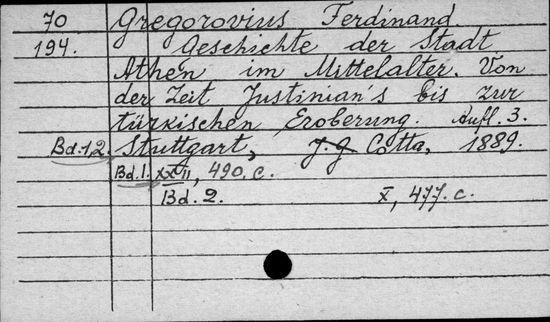 70 Gregorovius Ferdinand
194. Geschichte der Stadt
Athen im Mittelalter. Von
der Zeit Justinian's bis zur
türkischen Eroberung. Aufl. 3.
Bd.1,2. Stuttgart, J. G. Cotta, 1889.
Bd. 1. XXII, 490. c.
Bd. 2. X, 477. c.